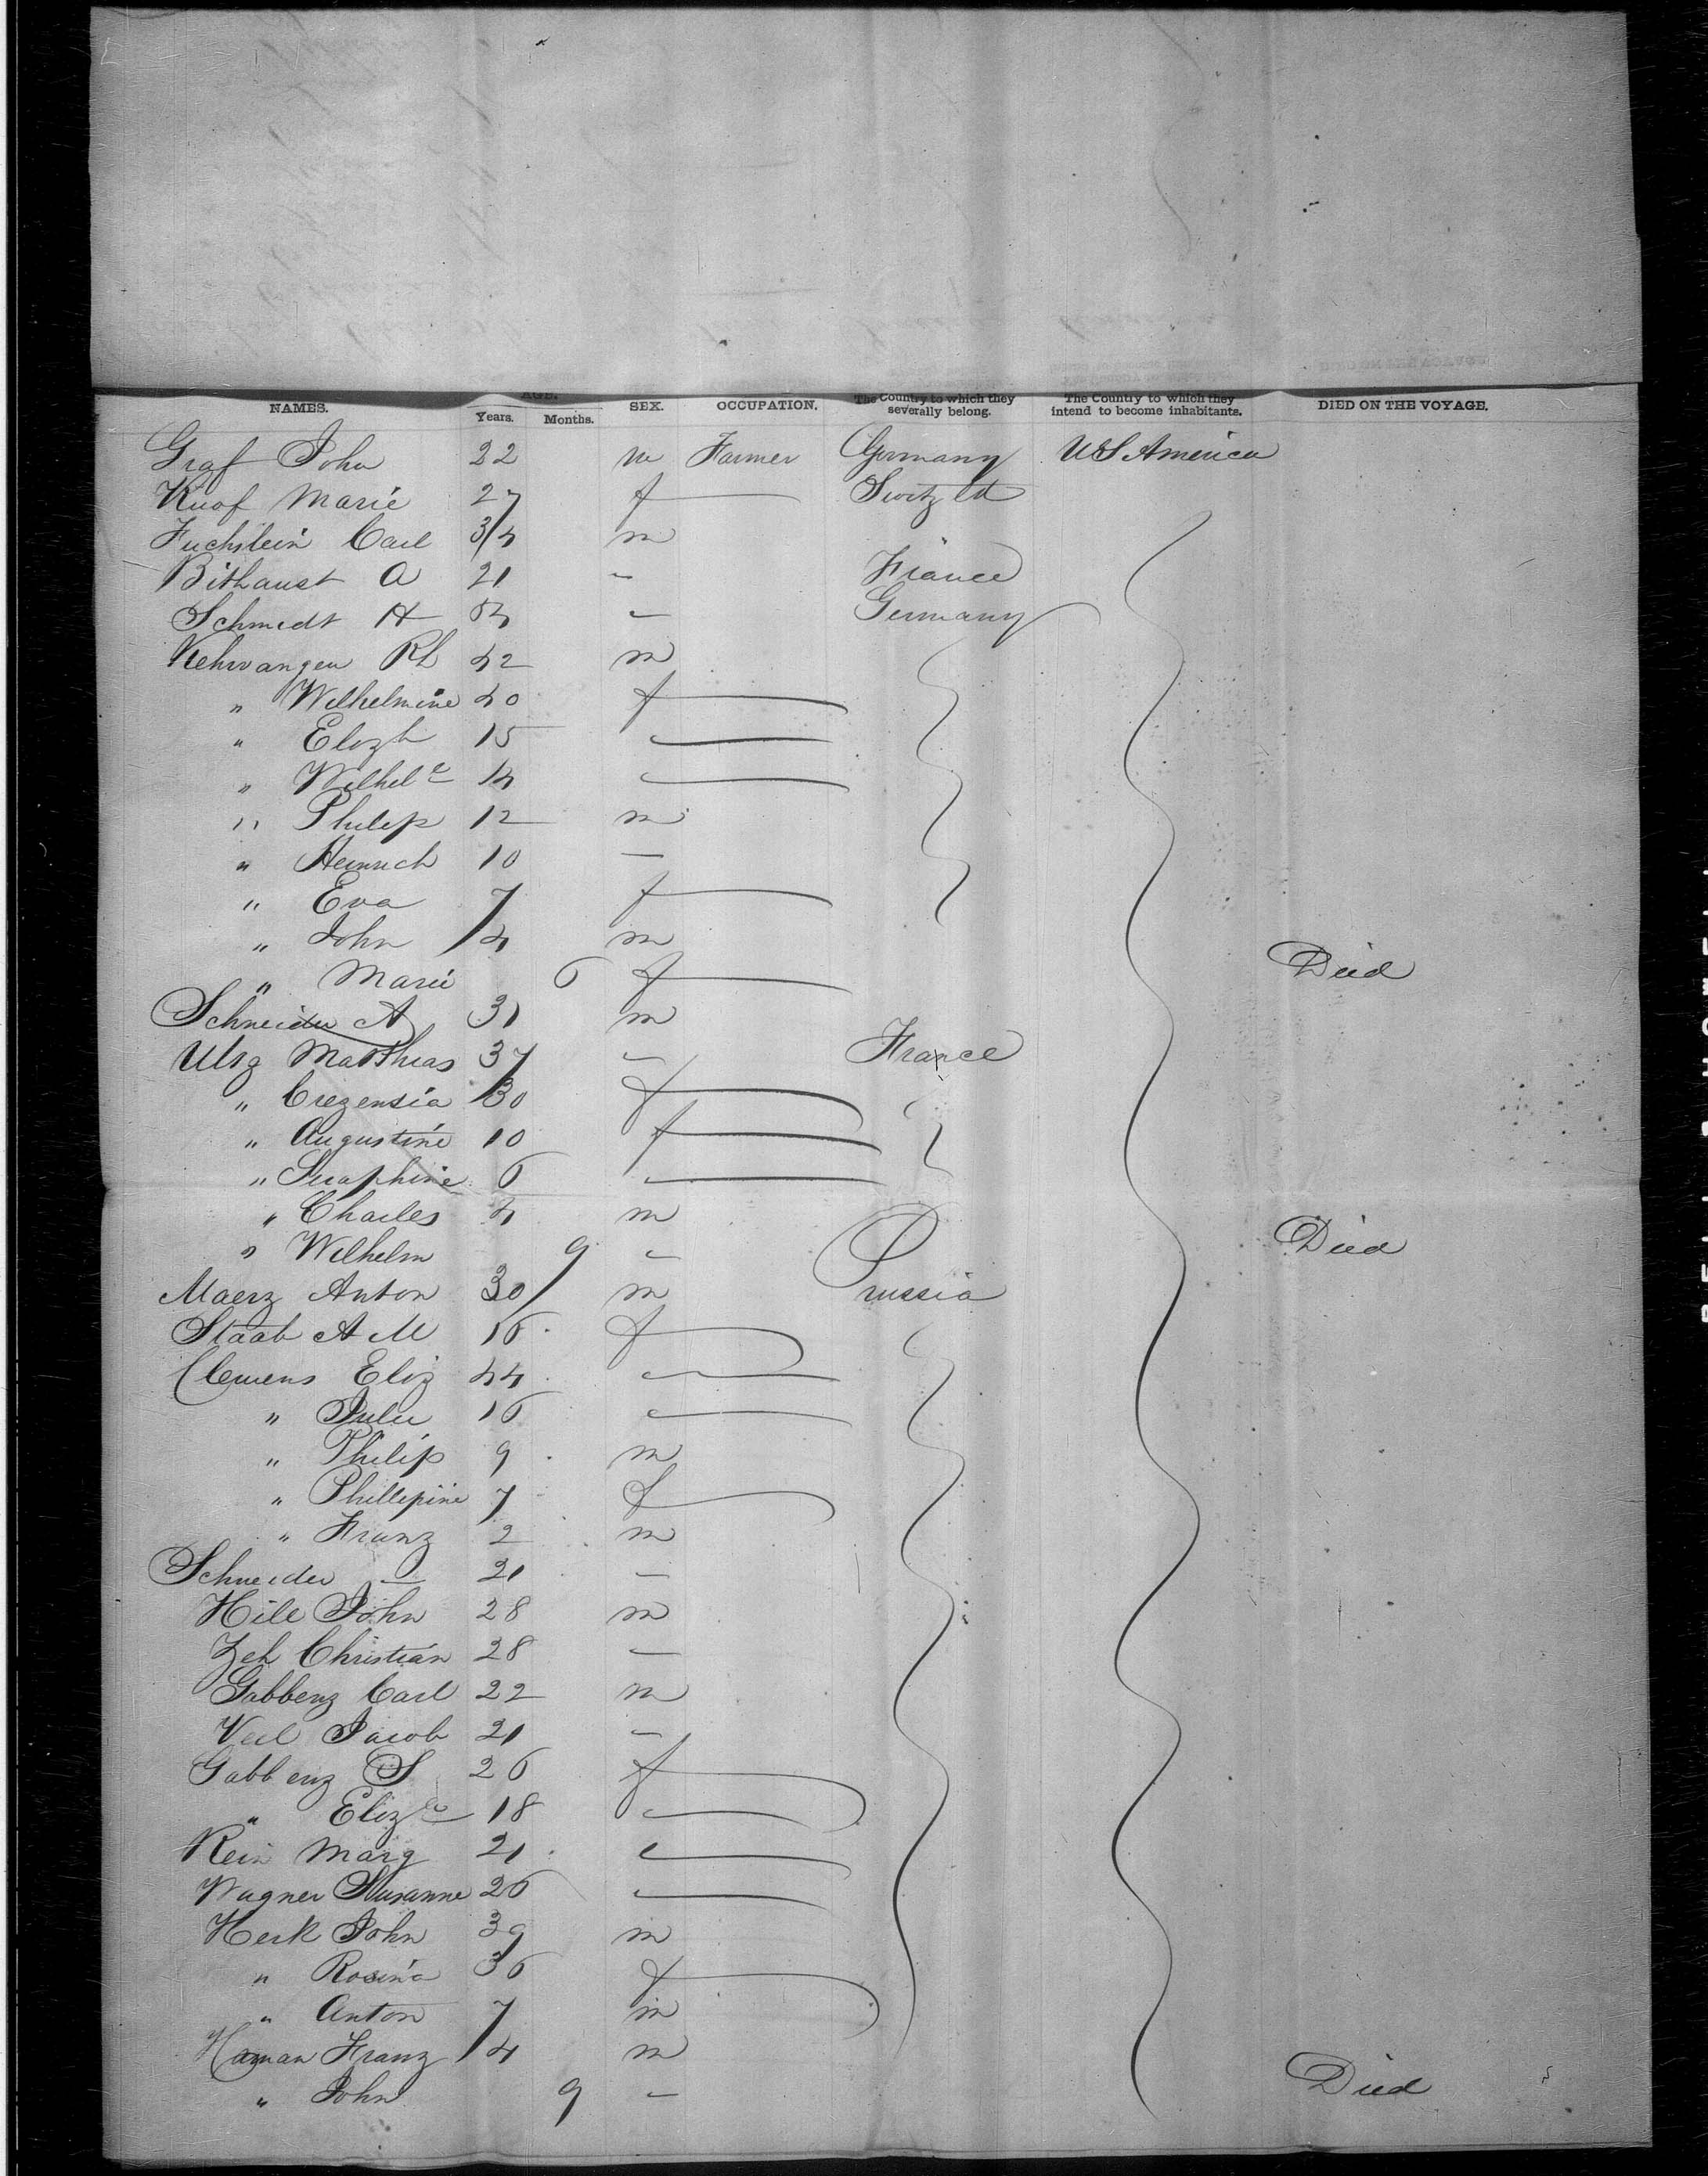 NAMES. AGE. Years. Months. SEX. OCCUPATION. The Country to which they severally belong. The Country to which they intend to become inhabitants. DIED ON THE VOYAGE.
Graf John 22 m Farmer Germany US America
Knof Marie 27 f Switzld
Fuchslein Carl 34 m
Bithaust A 21 - France
Schmidt H - Germany
Nehwangen Rh 42 m
" Wilhelmine 40 f
" Elizh 15
" Wilhele 14
" Philip 12 m
" Heinrich 10 -
" Eva 7 f
" John 4 m
" Marie 6 f Died
Schneider A 31 m
Ulsg Matthias 37 - France
" Crezensia 30 f
" Augustine 10 f
" Seraphine 6
" Charles 4 m
" Wilhelm 9 - Died
Maerz Anton 30 m Prussia
Staab A M 16 f
Clemens Eliz 44
" Julie 16
" Philip 9 m
" Phillipine 7 f
" Franz 2 m
Schneider — 21 -
Hile John 28 m
Zeh Christian 28 -
Gabbenz Carl 22 m
Veil Jacob 21 -
Gabbenz S 26 f
" Eliz 18
Rein Marg 21
Wagner Susanne 26
Herk John 39 m
" Rosina 36 f
" Anton 7 m
Haman Franz 4 m
" John 9 - Died